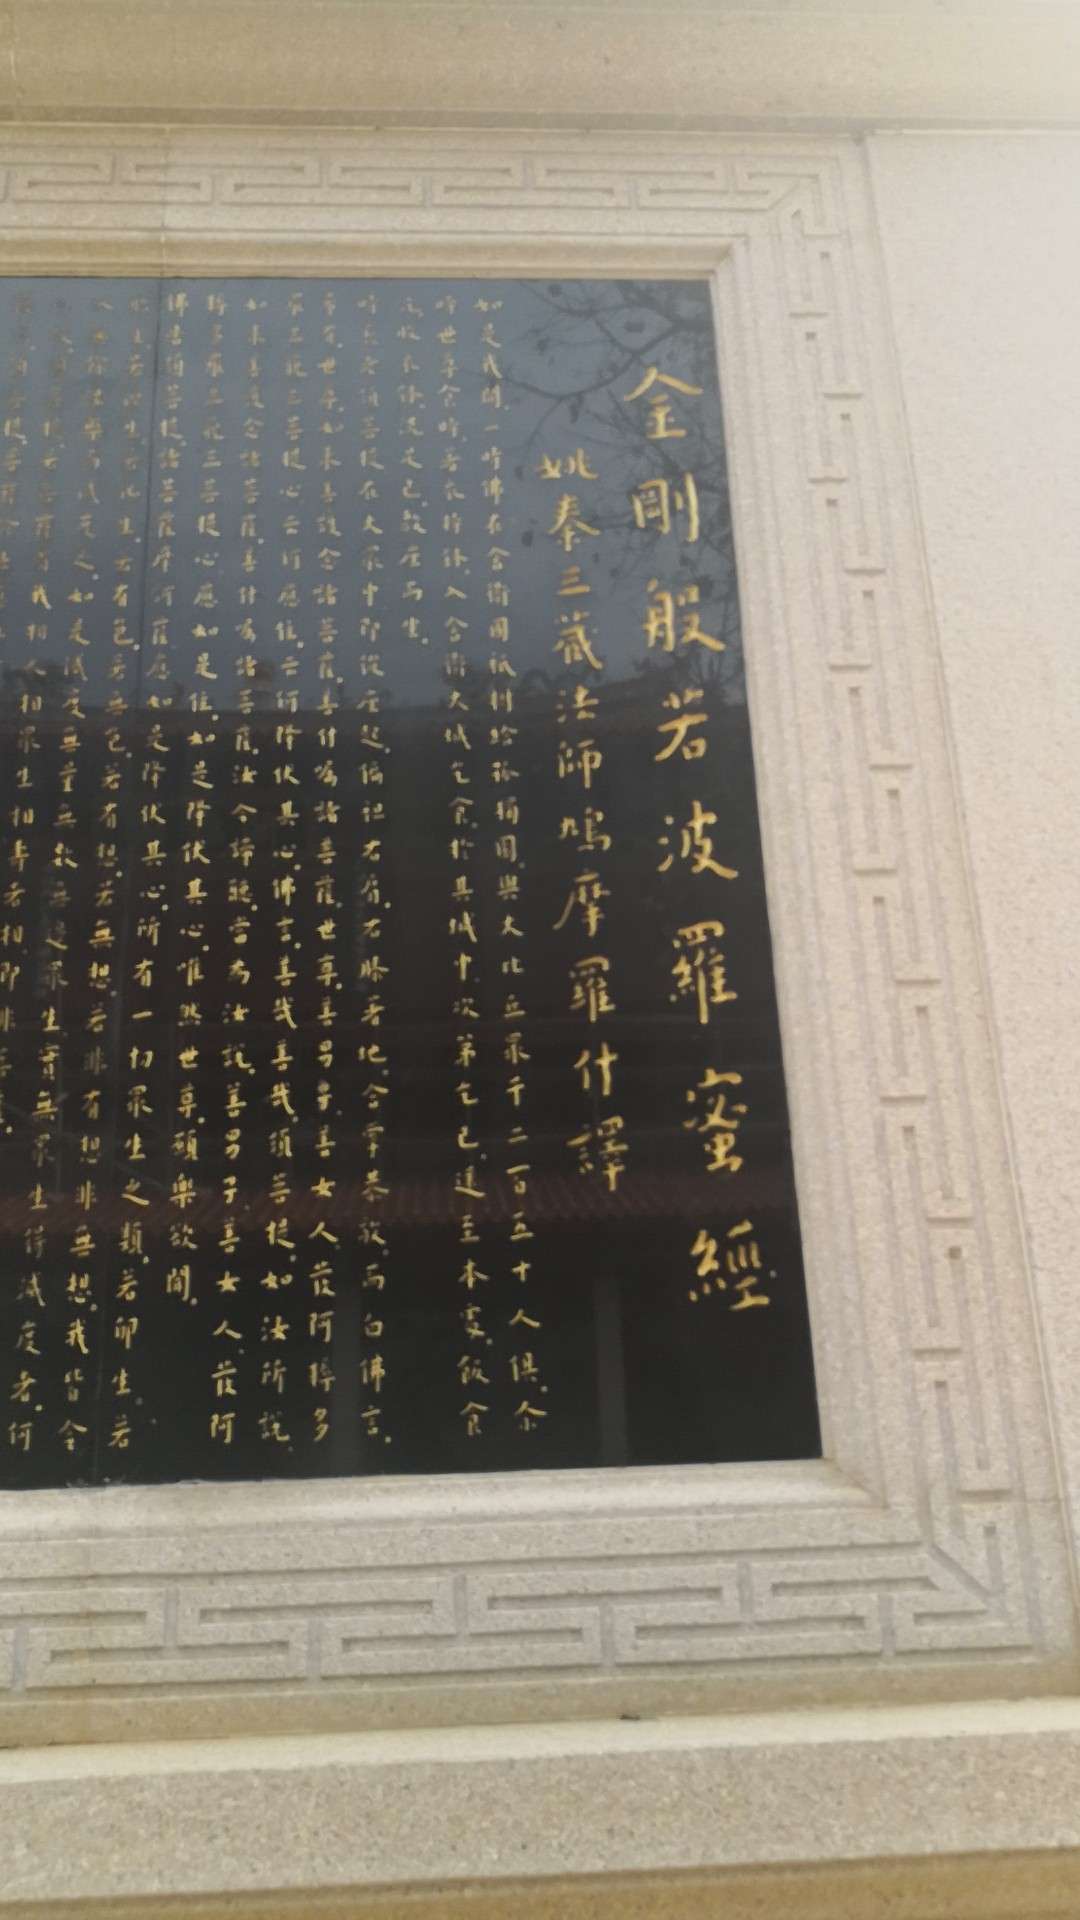 金剛般若波羅蜜經
姚秦三藏法師鳩摩羅什譯
如是我聞。一時佛在舍衛國祇樹給孤獨園。與大比丘眾千二百五十人俱。尒
時世尊食時。著衣持鉢。入舍衛大城乞食。於其城中。次第乞已。還至本處。飯食
訖。收衣鉢。洗足已。敷座而坐。
時長老須菩提在大眾中即從座起。偏袒右肩。右膝著地。合掌恭敬。而白佛言。
希有。世尊。如來善護念諸菩薩。善付囑諸菩薩。世尊。善男子。善女人。發阿耨多
羅三藐三菩提心。云何應住。云何降伏其心。佛言。善哉善哉。須菩提。如汝所說。
如來善護念諸菩薩。善付囑諸菩薩。汝今諦聽。當為汝說。善男子善女人。發阿
耨多羅三藐三菩提心。應如是住。如是降伏其心。唯然世尊。願樂欲聞。
佛告須菩提。諸菩薩摩訶薩。應如是降伏其心。所有一切眾生之類。若卵生。若
胎生。若濕生。若化生。若有色。若無色。若有想。若無想。若非有想非無想。我皆令
入無餘涅槃而滅度之。如是滅度無量無數無邊眾生。實無眾生得滅度者。何
我相人相眾生相壽者相。即非菩薩。